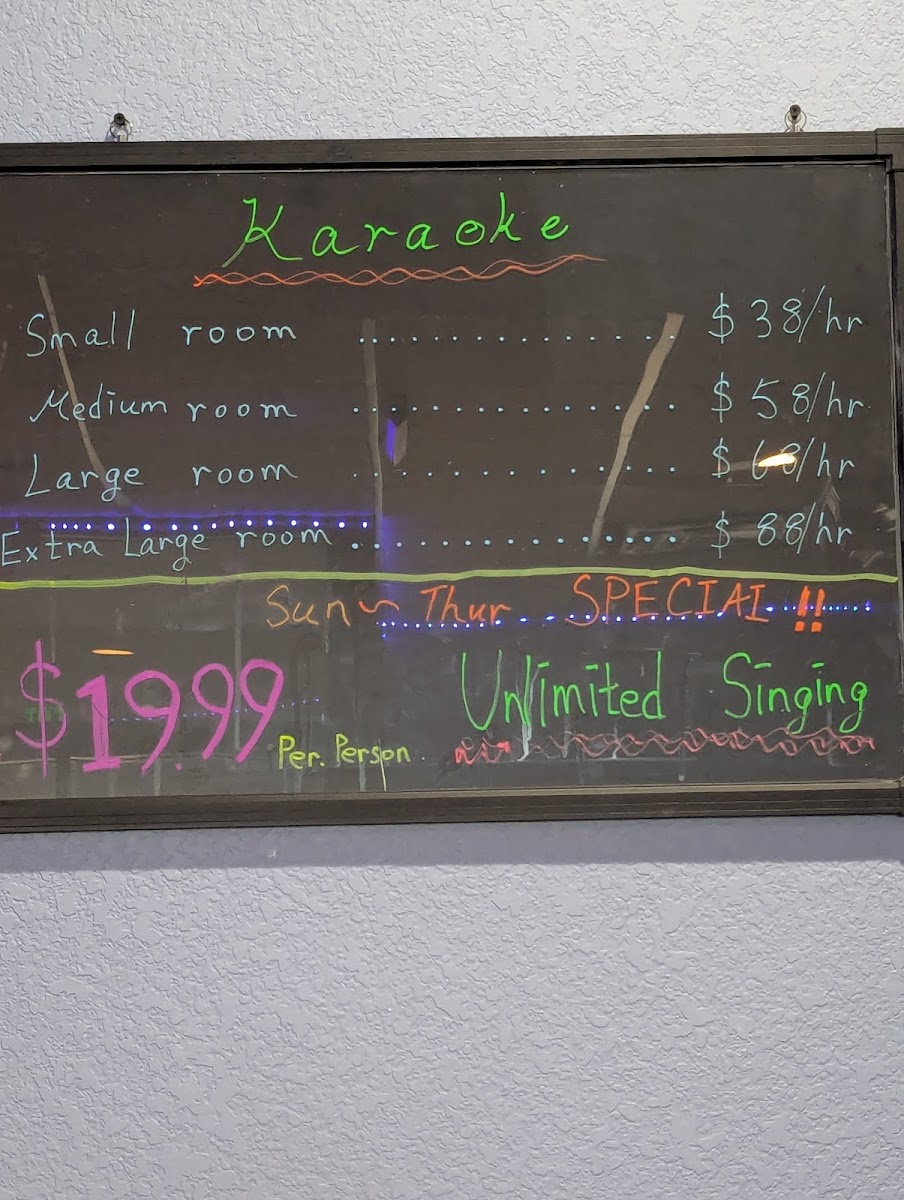 Karaoke
Small room .................. $38/hr
Medium room .................. $58/hr
Large room .................. $68/hr
Extra Large room .................. $88/hr
Sun ~ Thur SPECIAL !!
$19.99 Per. Person Unlimited Singing